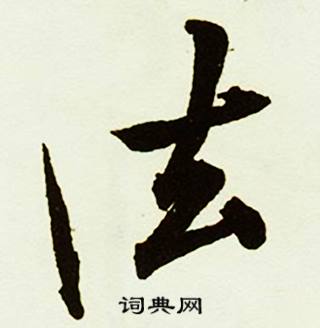 法
词典网